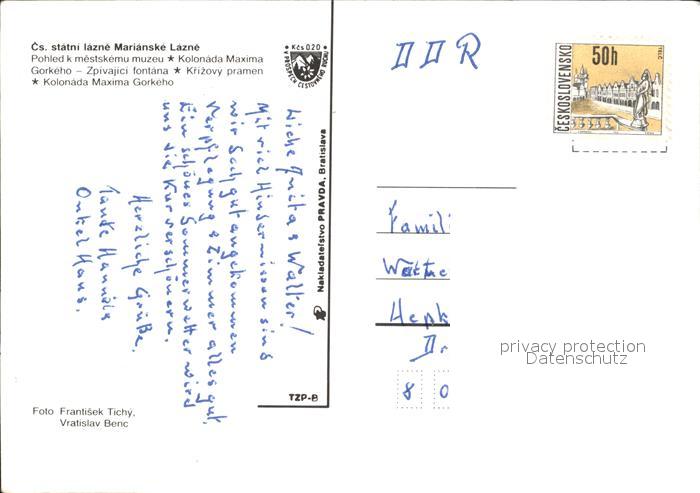 Čs. státní lázně Mariánské Lázně
Pohled k městskému muzeu ★ Kolonáda Maxima
Gorkého – Zpívající fontána ★ Křížový pramen
★ Kolonáda Maxima Gorkého
Kčs 0,20
PROSPĚCH CESTOVNÍHO RUCHU
Liebe Anita & Walter!
Mit sind
wir sehr gut angekommen
Verpflegung & Zimmer alles gut.
Ein schönes Sommerwetter wird
uns die Kur verschönern.
Herzliche Grüße.
Tante
Onkel Hans.
Nakladatelstvo PRAVDA, Bratislava
TZP-B
Foto František Tichý,
Vratislav Benc
DDR
ČESKOSLOVENSKO
50h
TELČ
Famili
Henk
Dr
8 0
privacy protection
Datenschutz